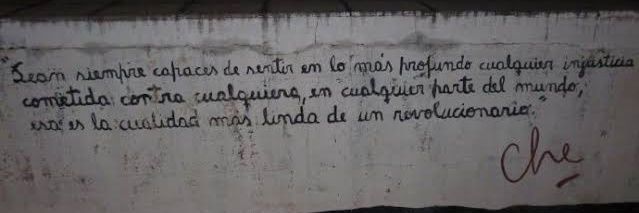 "Sean siempre capaces de sentir en lo más profundo cualquier injusticia
cometida contra cualquiera, en cualquier parte del mundo,
esa es la cualidad más linda de un revolucionario."
Che